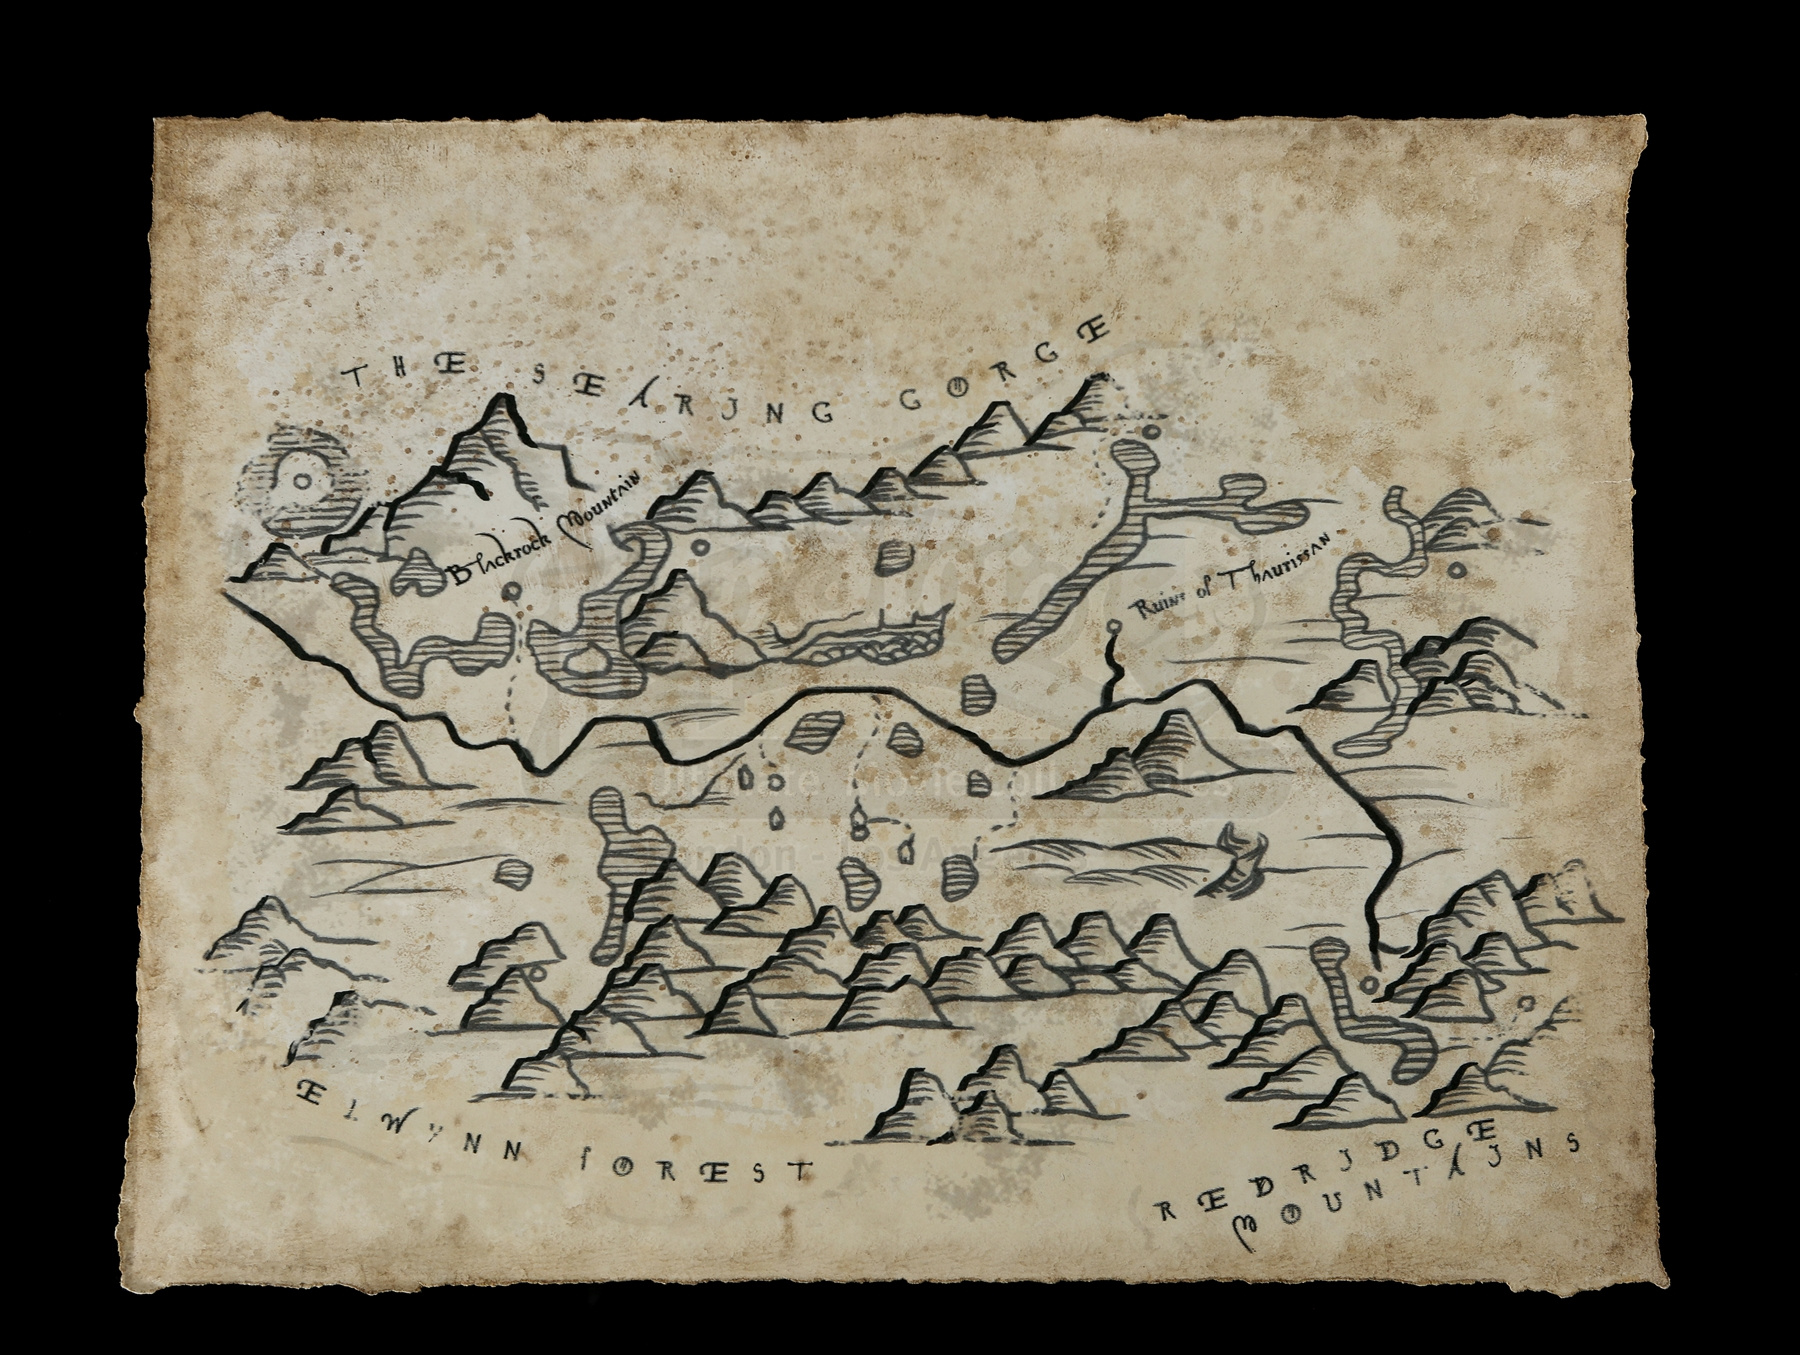 THE SEARJNG GORGE
Blackrock Mountain
Ruins of Thaurissan
Ultimate Movie Collectables
London - Los Angeles
ELWYNN FOREST
REDRJDGE
MOUNTAJNS